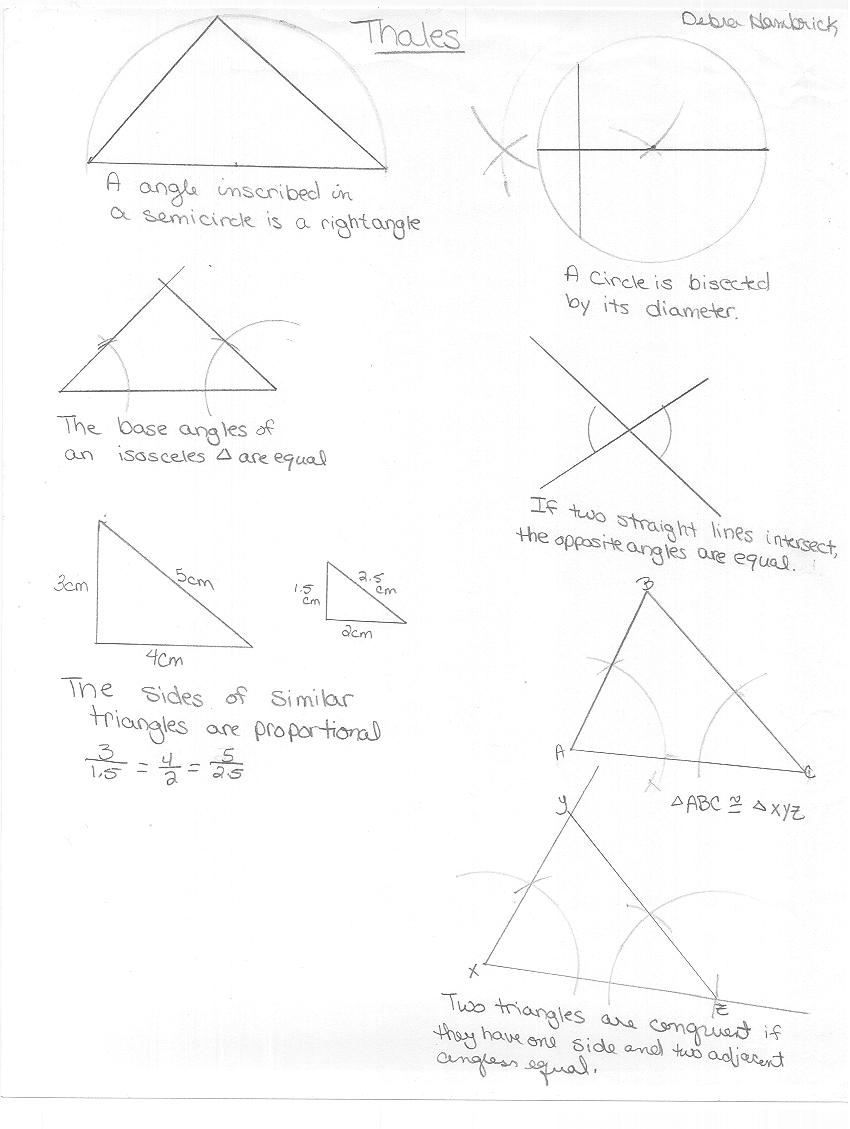 Thales
Debra Hambrick
A angle inscribed in
a semicircle is a right angle
A circle is bisected
by its diameter.
The base angles of
an isosceles △ are equal
If two straight lines intersect,
the opposite angles are equal.
3cm
5cm
4cm
1.5
cm
2.5
cm
2cm
The sides of similar
triangles are proportional
3/1.5 = 4/2 = 5/2.5
B
A
C
△ABC ≅ △XYZ
Y
X
Z
Two triangles are congruent if
they have one side and two adjacent
angless equal.